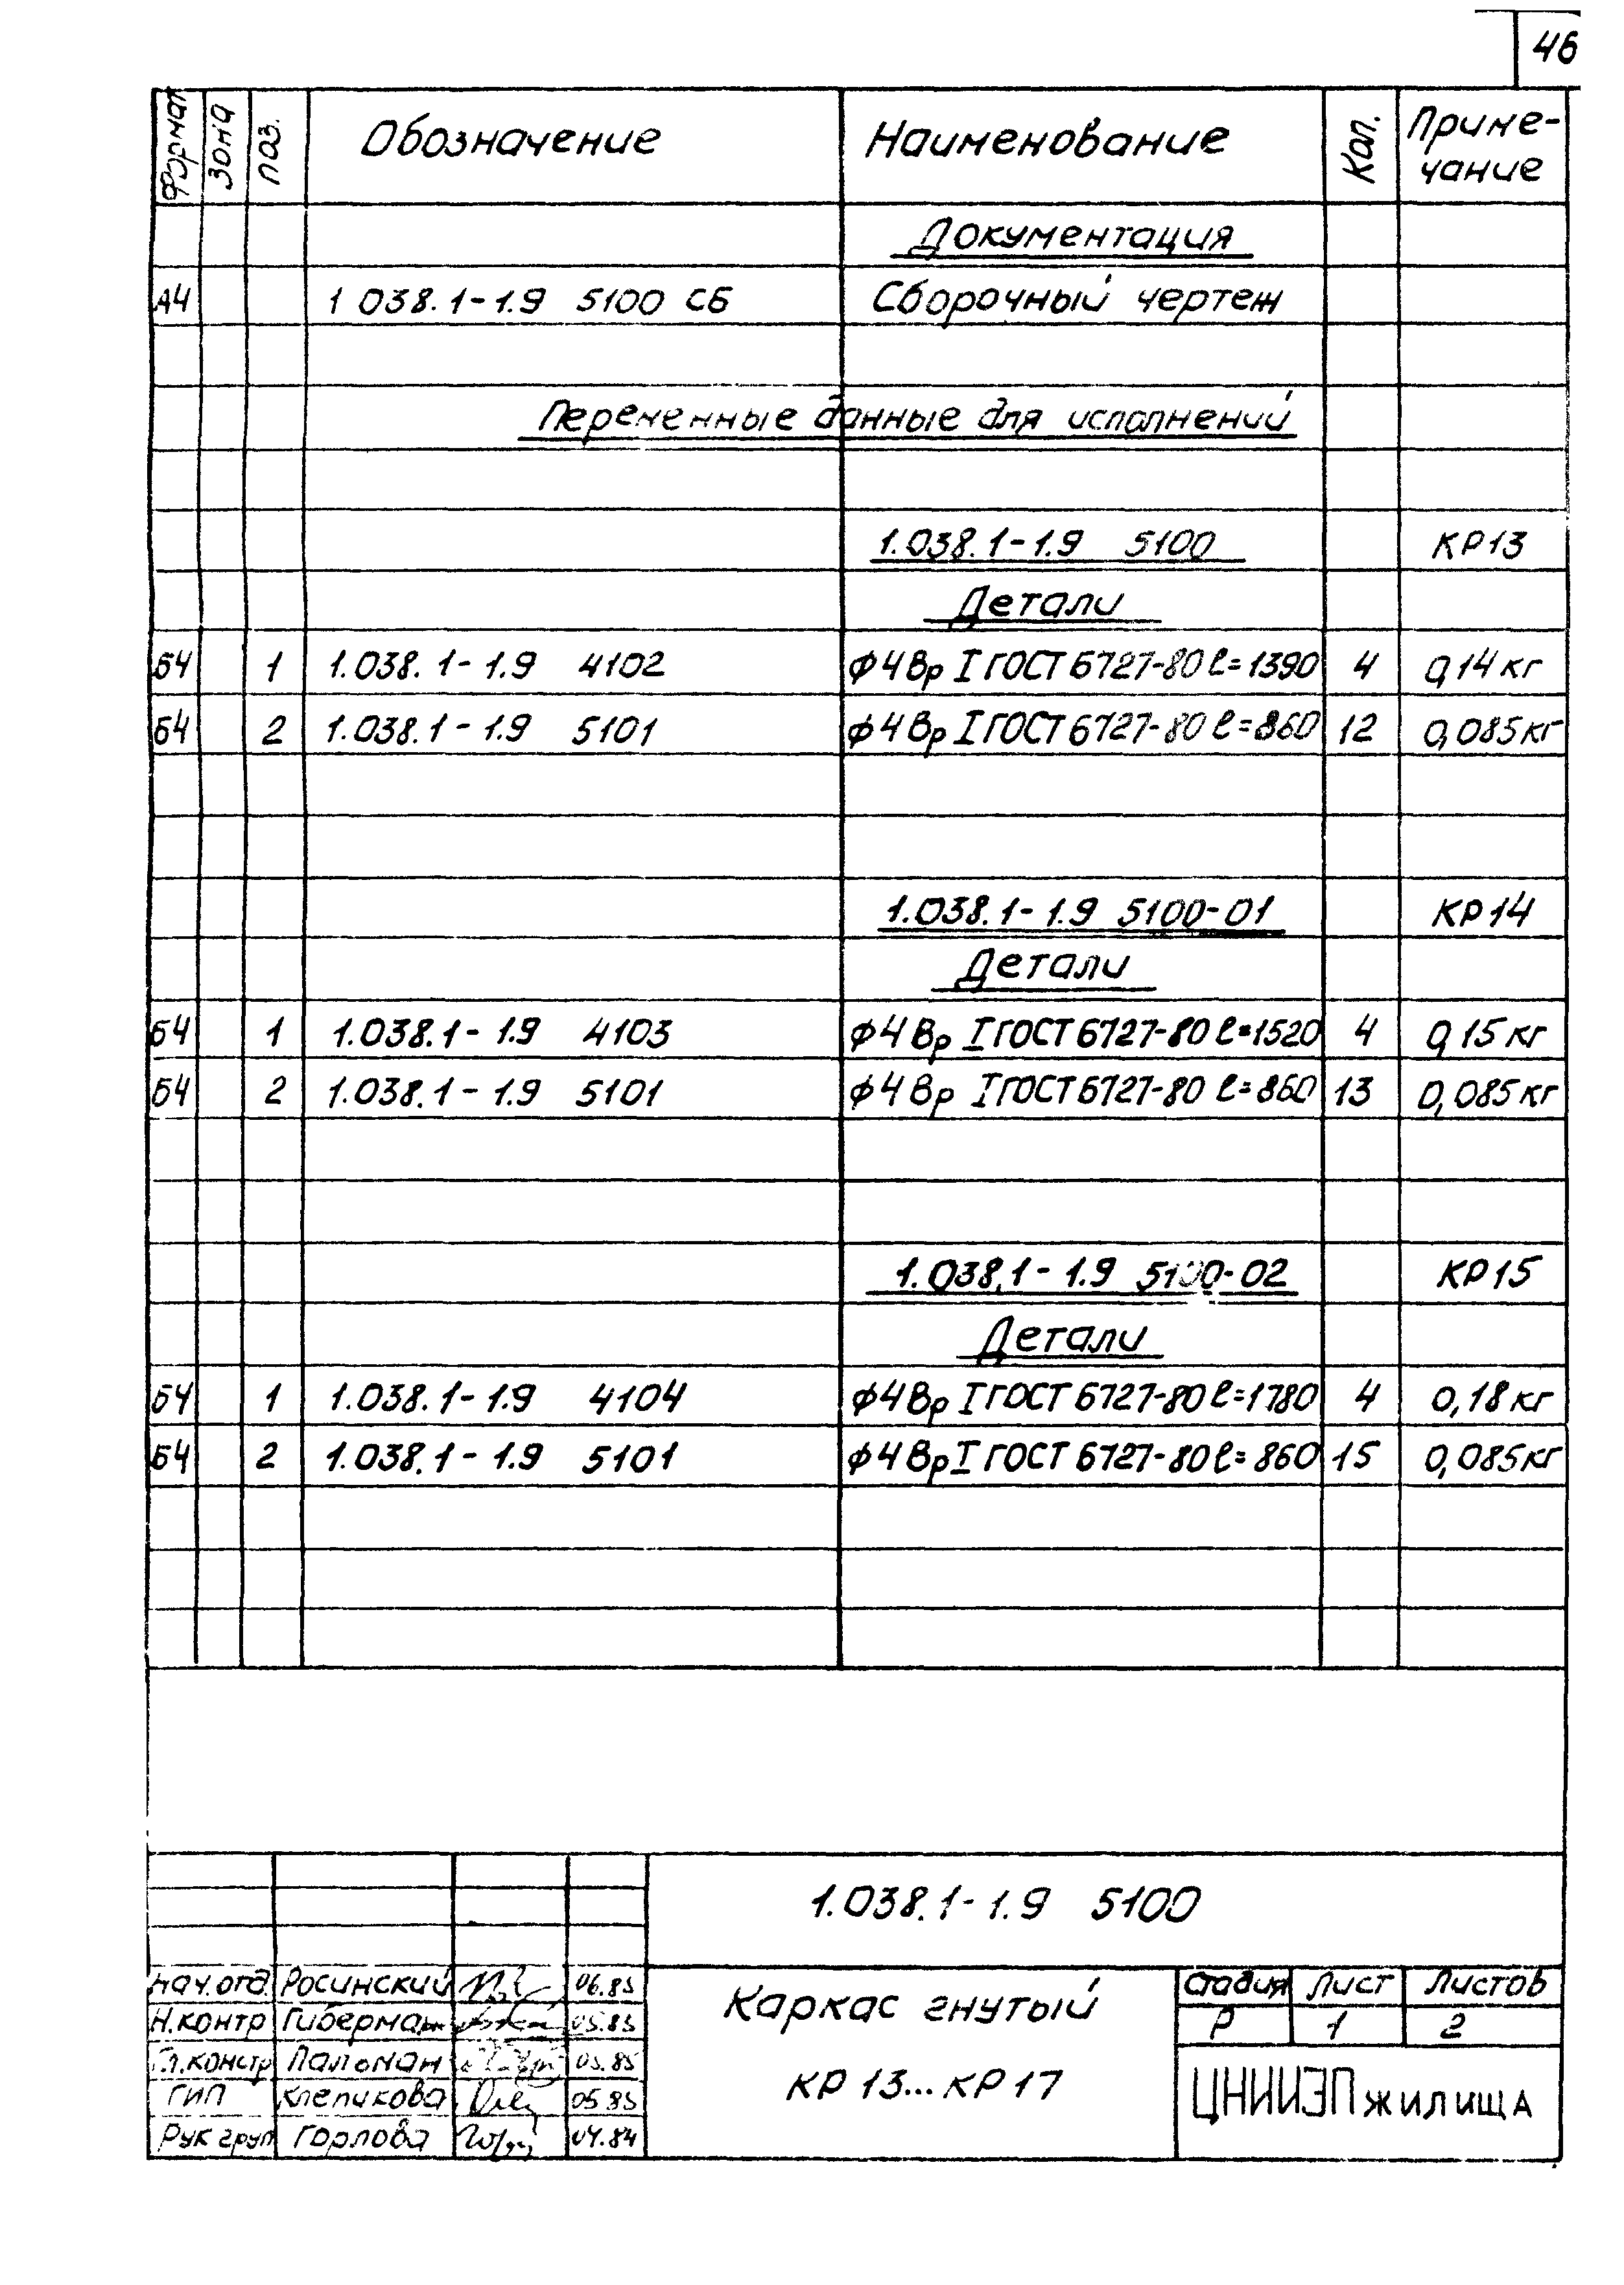 46
Формат Зона Поз. Обозначение Наименование Кол. Приме-
чание
Документация
А4 1 038.1-1.9 5100 СБ Сборочный чертеж
Переменные данные для исполнений
1.038.1-1.9 5100 КР13
Детали
Б4 1 1.038.1-1.9 4102 ф4ВрI ГОСТ 6727-80 ℓ=1390 4 0,14 кг
Б4 2 1.038.1-1.9 5101 ф4ВрI ГОСТ 6727-80 ℓ=860 12 0,085кг
1.038.1-1.9 5100-01 КР14
Детали
Б4 1 1.038.1-1.9 4103 ф4ВрI ГОСТ 6727-80 ℓ=1520 4 0,15 кг
Б4 2 1.038.1-1.9 5101 ф4ВрI ГОСТ 6727-80 ℓ=860 13 0,085кг
1.038.1-1.9 5100-02 КР15
Детали
Б4 1 1.038.1-1.9 4104 ф4ВрI ГОСТ 6727-80 ℓ=1780 4 0,18 кг
Б4 2 1.038.1-1.9 5101 ф4ВрI ГОСТ 6727-80 ℓ=860 15 0,085кг
1.038.1-1.9 5100
Нач.отд. Росинский 06.85
Н.контр Гиберман 05.85
Гл.констр Пальман 05.85
ГИП Клепикова 05.85
Рук груп Горлова 04.84
Каркас гнутый
КР 13...КР 17
Стадия Лист Листов
Р 1 2
ЦНИИЭП жилища